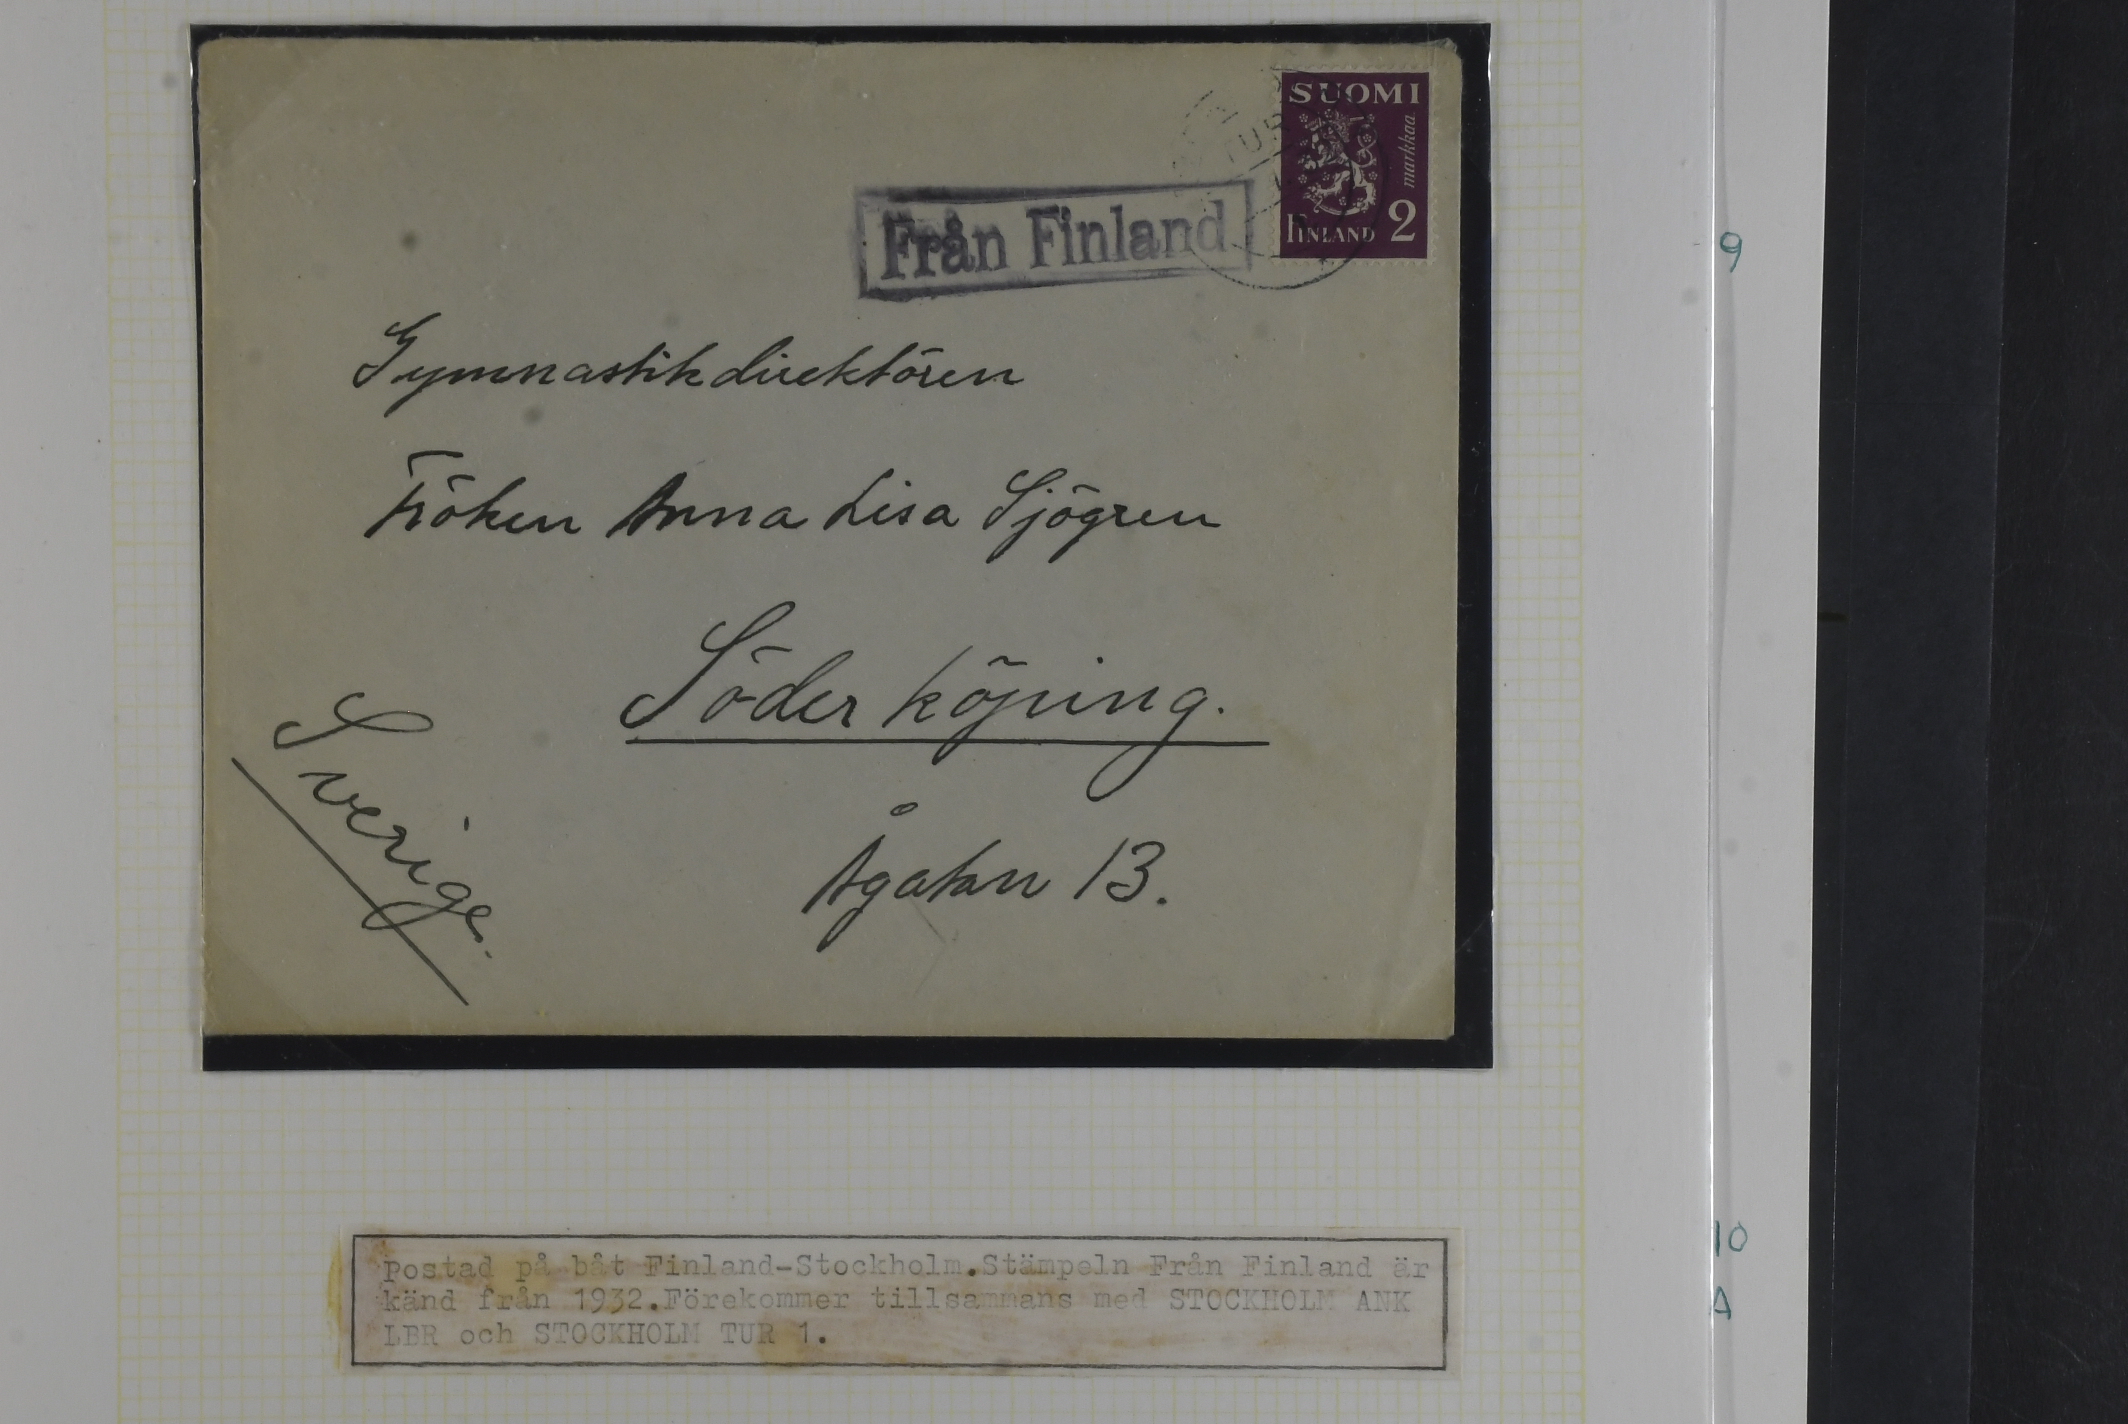 SUOMI
markkaa
FINLAND 2
TUR
Från Finland
Gymnastikdirektören
Fröken Anna Lisa Sjögren
Söderköping.
Sverige.
Ågatan 13.
9
Postad på båt Finland-Stockholm.Stämpeln Från Finland är
känd från 1932.Förekommer tillsammans med STOCKHOLM ANK
LBR och STOCKHOLM TUR 1.
10
A